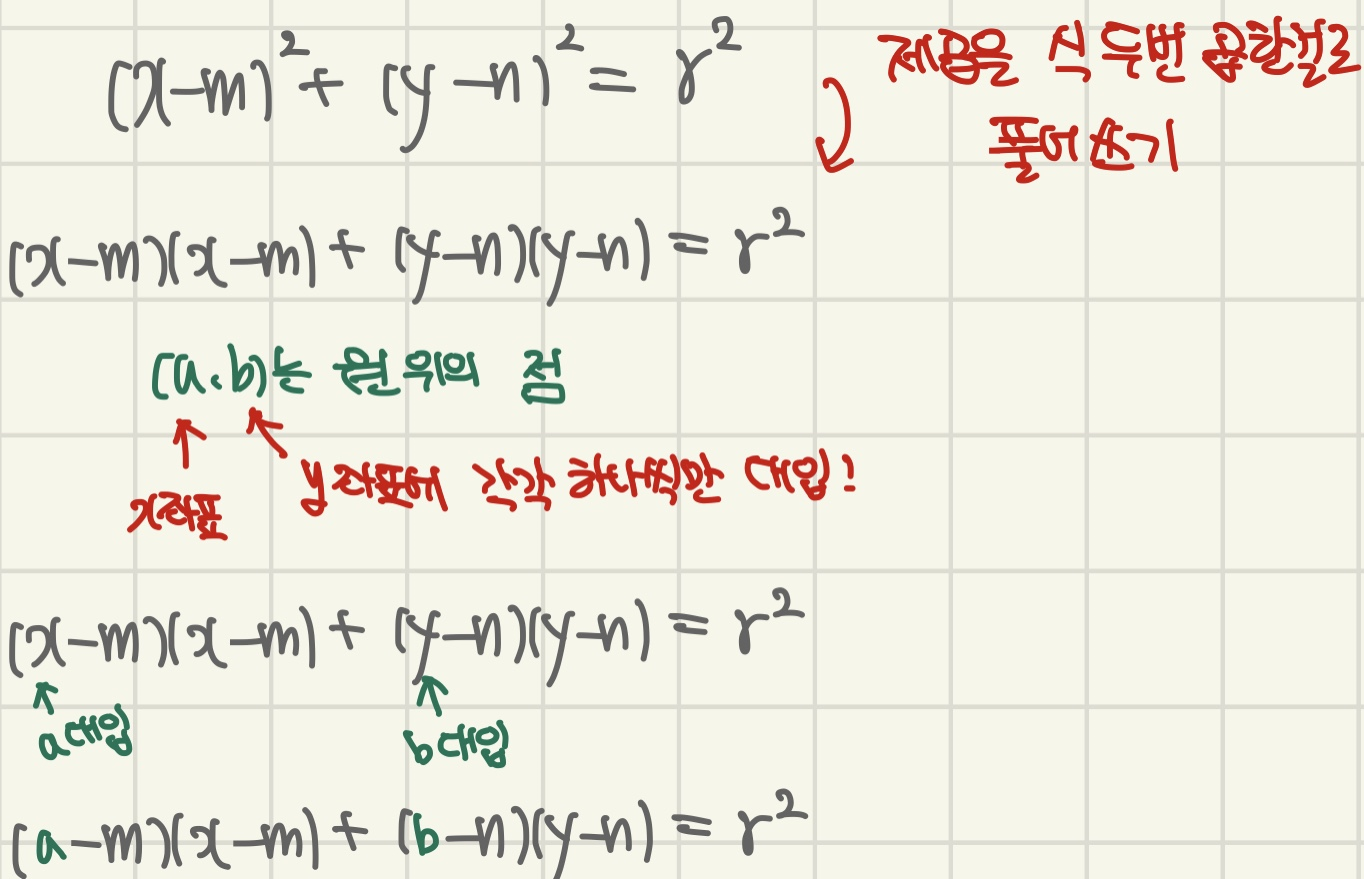 (x-m)²+ (y-n)²= r²
제곱을 식 두번 곱한걸로
풀어쓰기
(x-m)(x-m)+ (y-n)(y-n) = r²
(a.b)는 원 위의 점
x좌표
y좌표에 각각 하나씩만 대입!
(x-m)(x-m)+ (y-n)(y-n) = r²
a대입
b대입
(a-m)(x-m)+ (b-n)(y-n) = r²